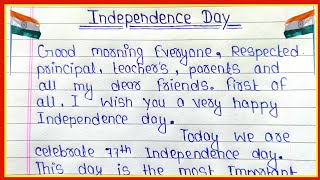 Independence Day
Good morning Everyone, Respected
principal, teachers, parents and
all my dear friends. First of
all, I wish you a very happy
Independence day.
Today we are
celebrate 77th Independence day.
This day is the most Important